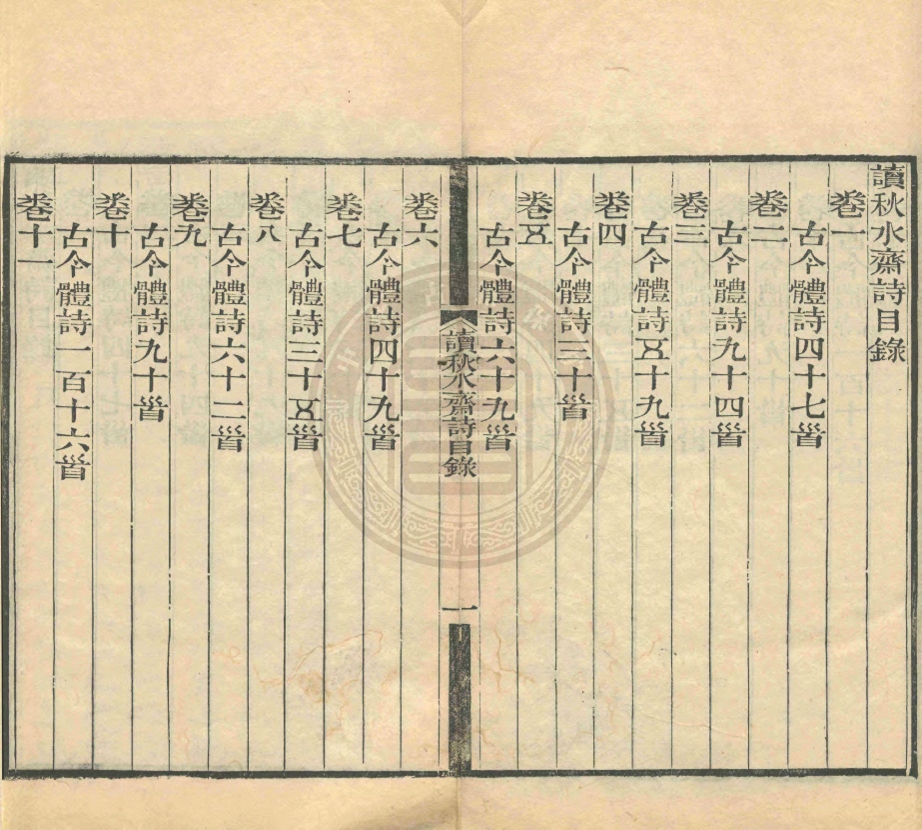 讀秋水齋詩目錄
卷一
古今體詩四十七首
卷二
古今體詩九十四首
卷三
古今體詩五十九首
卷四
古今體詩三十首
卷五
古今體詩六十九首
讀秋水齋詩目錄
一
卷六
古今體詩四十九首
卷七
古今體詩三十五首
卷八
古今體詩六十二首
卷九
古今體詩九十首
卷十
古今體詩一百十六首
卷十一